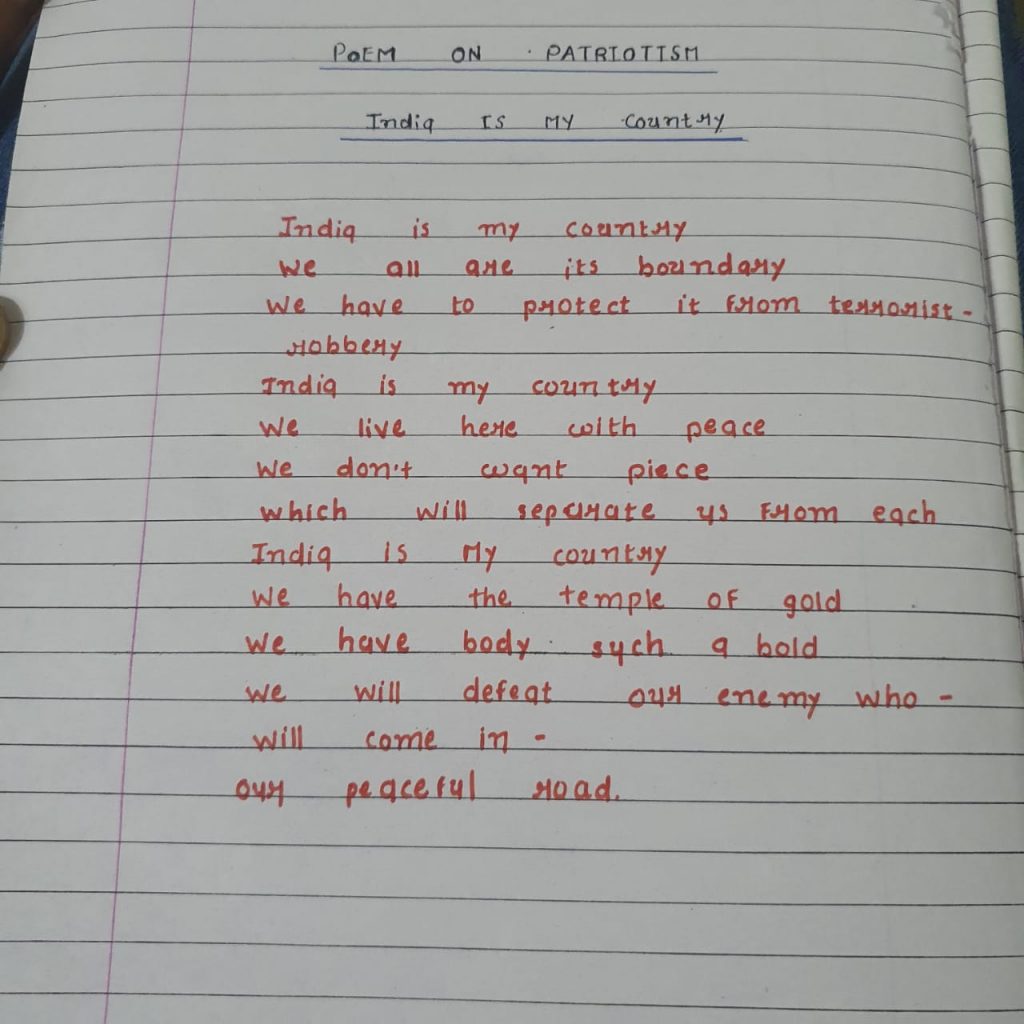 POEM ON PATRIOTISM
India IS MY Country
India is my country
We all are its boundary
We have to protect it from terrorist-
robbery
India is my country
We live here with peace
We don't want piece
which will separate us from each
India is My country
We have the temple of gold
We have body such a bold
we will defeat our enemy who -
will come in -
our peaceful road.